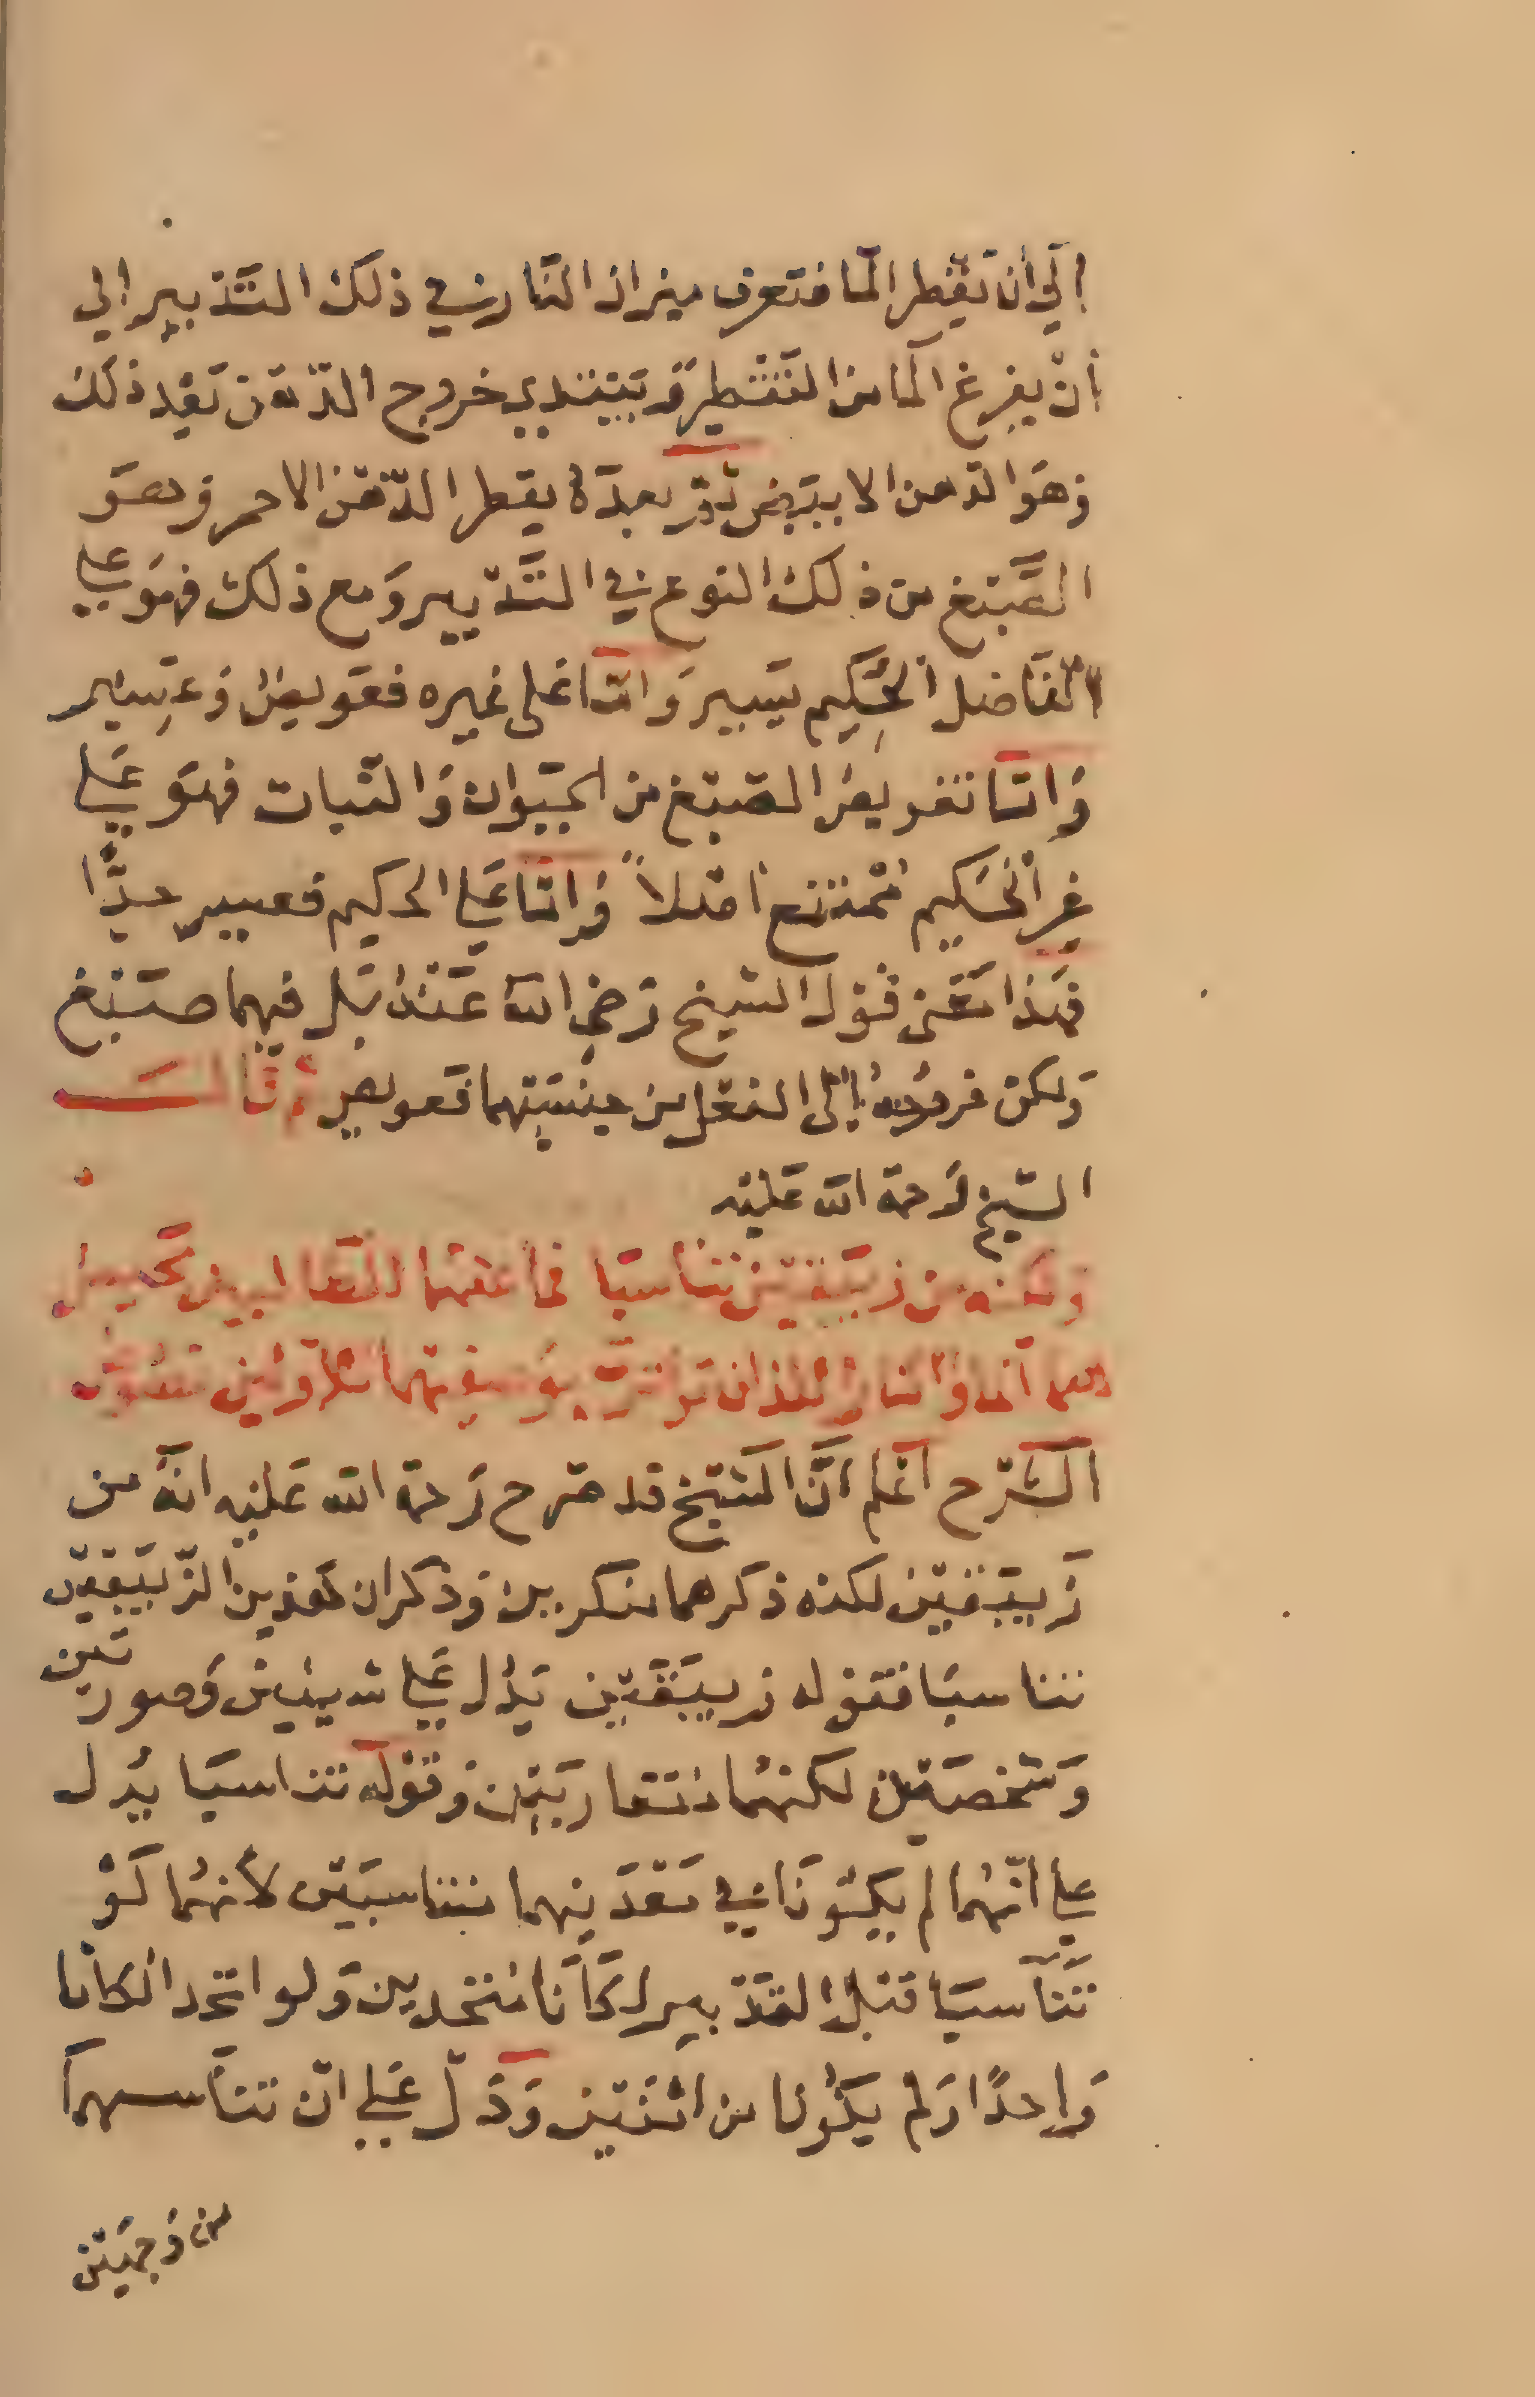 إلى أن تقطر الما فتعرف ميزان النار في ذلك التدبير إلى
أن يفرغ الما من التقطير ويبتدي خروج الدهن بعد ذلك
وهو الدهن الابيض ثم بعده يقطر الدهن الاحمر وهو
الصبغ من ذلك النوع في التدبير ومع ذلك فهو علي
الفاضل الحكيم يسير واما على غيره فعويص وعسير
واما تعويص الصبغ من الحيوان والنبات فهو علي
غير الحكيم ممتنع اصلاً واما علي الحكيم فعسير جدًّا
فهذا معنى قول الشيخ رضي الله عنه بل فيهما صبغ
ولكن خروجه إلى الفعل من جنسيهما فعويص وقال
الشيخ رحمة الله عليه
زيبقين تناسبا
الشرح اعلم انَّ الشيخ قد صرح رحمة الله عليه انه من
زيبقين لكنه ذكرهما منكرين وذكر ان هذين الزيبقين
تناسبا فقوله زيبقين يدل علي شيئين وصورتين
وشخصين لكنهما متقاربين وقوله تناسبا يدل
علي انهما لم يكونا في معدنهما متناسبين لأنهما لو
تناسبا قبل التدبير لكانا متحدين ولو اتحدا لكانا
واحدًا ولم يكونا من اثنين ودل علي ان تناسبهما
من وجهين